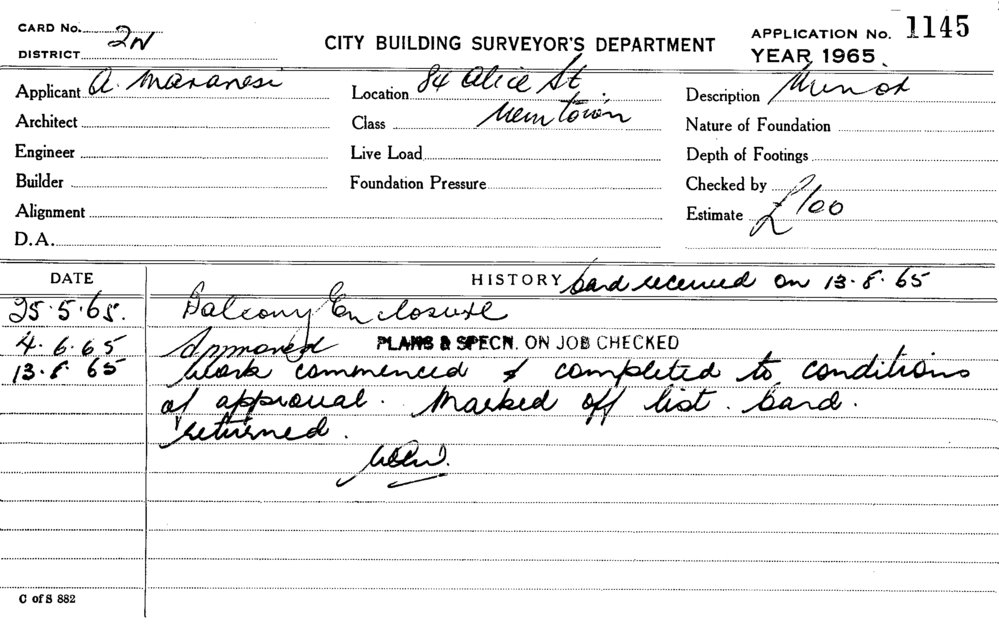 CARD No. 2N
DISTRICT
CITY BUILDING SURVEYOR'S DEPARTMENT
APPLICATION No. 1145
YEAR 1965.
Applicant A. Maranesi
Location 84 Alice St.
Description Minor
Architect
Class Newtown
Nature of Foundation
Engineer
Live Load
Depth of Footings
Builder
Foundation Pressure
Checked by
Alignment
Estimate £100
D.A.
DATE
HISTORY Card received on 13.8.65
25.5.65. Balcony Enclosure
4.6.65 Approved PLANS & SPECN. ON JOB CHECKED
13.8.65 Work commenced & completed to conditions
of approval. Marked off list. Card.
returned.
C of S 882